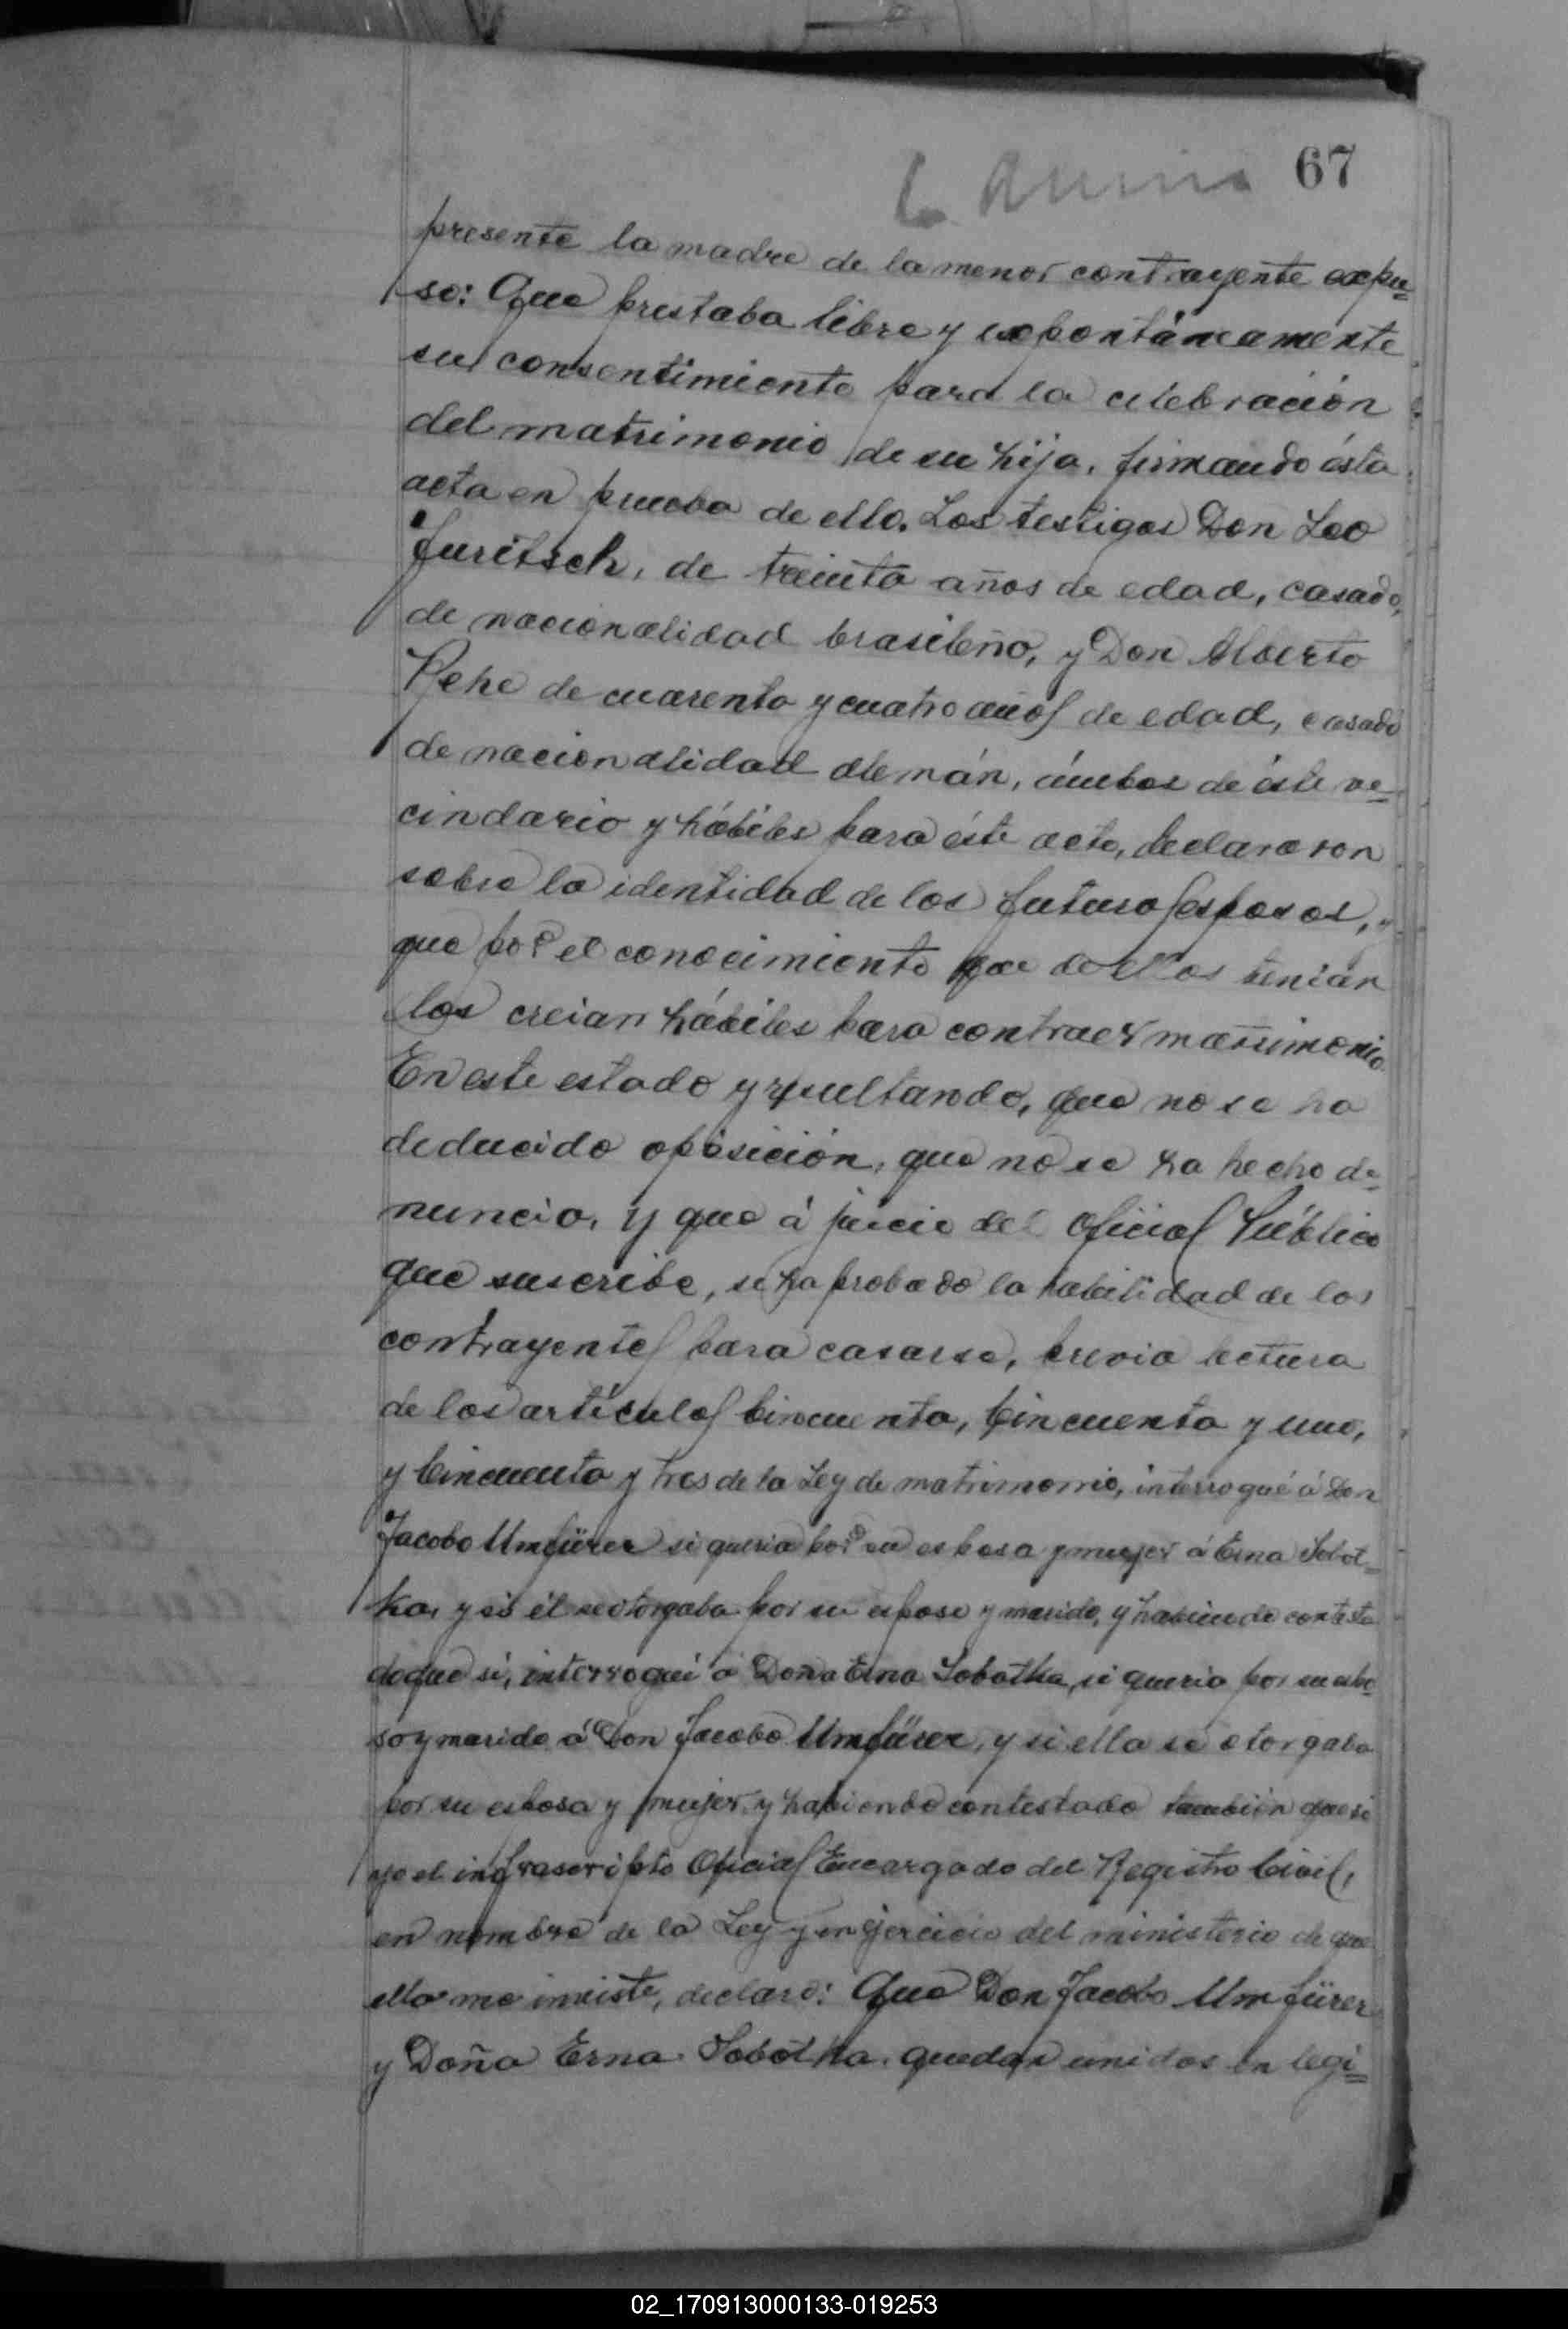 67
presente la madre de la menor contrayente expu=
so: Que prestaba libre y expontáneamente
su consentimiento para la celebración
del matrimonio de su hija, firmando ésta
acta en prueba de ello. Los testigos Don Leo
Juritsch, de treinta años de edad, casado,
de nacionalidad brasileño, y Don Alberto
Pehe de cuarenta y cuatro años de edad, casado
de nacionalidad alemán, ámbos de éste ve=
cindario y hábiles para éste acto, declararon
sobre la identidad de los futuros esposos, y
que por el conocimiento que de ellos tenian
los creian hábiles para contraer matrimonio.
En este estado y resultando, que no se ha
deducido oposición, que no se ha hecho de=
nuncia, y que á juicio del Oficial Público
que suscribe, se ha probado la habilidad de los
contrayentes para casarse, previa lectura
de los artículos Cincuenta, Cincuenta y uno,
y Cincuenta y tres de la Ley de matrimonio, interrogué á Don
Jacobo Umfürer si queria por su esposa y mujer á Erna Sobot=
ka, y si él se otorgaba por su esposo y marido, y habiendo contesta
do que si, interrogué á Doña Erna Sobotka, si queria por su espo
so y marido á Don Jacobo Umfürer, y si ella se otorgaba
por su esposa y mujer, y habiendo contestado tambien que si
yo el infrascripto Oficial Encargado del Registro Civil,
en nombre de la Ley y en ejercicio del ministerio de que
ella me inviste, declaro: Que Don Jacobo Umfürer
y Doña Erna Sobotka, quedan unidos en legi=
02_170913000133-019253